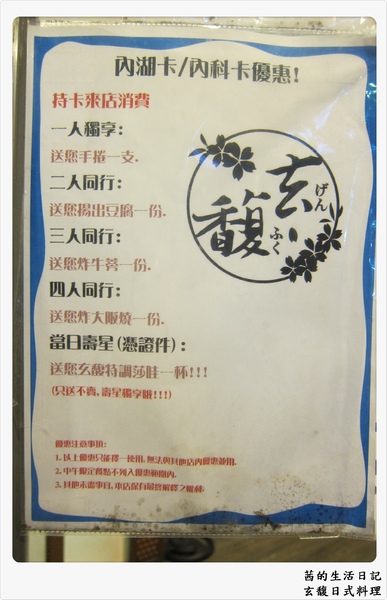 內湖卡/內科卡優惠!
持卡來店消費
一人獨享:
送您手捲一支.
二人同行:
送您揚出豆腐一份.
三人同行:
送您炸牛蒡一份.
四人同行:
送您炸大阪燒一份.
當日壽星(憑證件):
送您玄馥特調莎哇一杯!!!
(只送不賣,壽星獨享哦!!!)
玄馥
げんふく
優惠注意事項:
1. 以上優惠只能擇一使用, 無法與其他店內優惠並用.
2. 中午限定餐點不列入優惠範圍內.
3. 其他未盡事宜, 本店保有最終解釋之權利.
茜的生活日記
玄馥日式料理